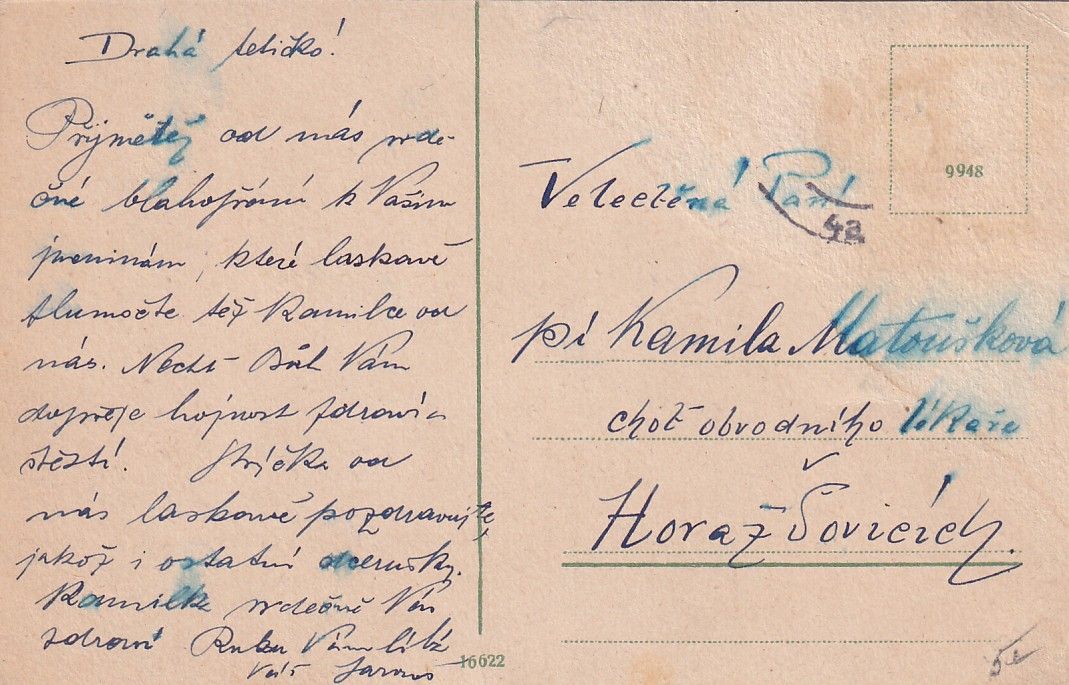 Drahá tetičko!
Přijmětež od nás srde-
čné blahopřání k Vašim
jmeninám, které laskavě
tlumočte též Kamilce od
nás. Nechť Bůh Vám
dopřeje hojnost zdraví a
štěstí. Strýčka od
nás laskavě pozdravujte,
jakož i ostatní dcerušky.
Kamilka srdečně Vás
zdraví Ruku Vám líbá
Váš
16622
9948
Velectěná Paní
42
pí Kamila Matoušková
choť obvodního lékaře
Horažďovicích.